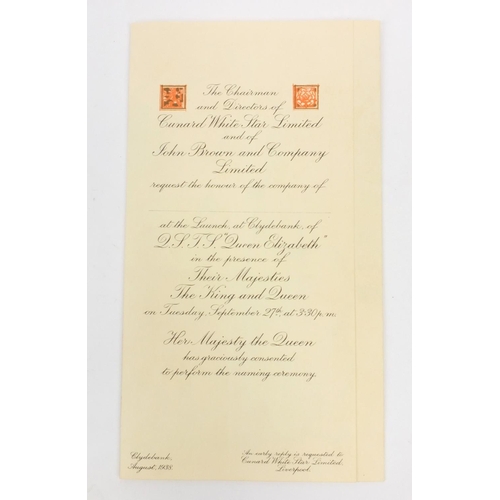 The Chairman
and Directors of
Cunard White Star Limited
and of
John Brown and Company
Limited
request the honour of the company of
at the Launch, at Clydebank, of
Q.S.T.S. "Queen Elizabeth"
in the presence of
Their Majesties
The King and Queen
on Tuesday, September 27th, at 3:30 p.m.
Her Majesty the Queen
has graciously consented
to perform the naming ceremony.
Clydebank,
August, 1938.
An early reply is requested to
Cunard White Star Limited,
Liverpool.